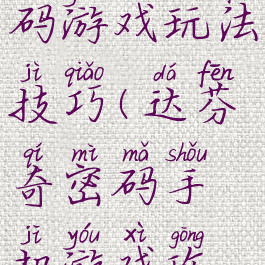 码游戏玩法
jì qiǎo dá fēn
技巧(达芬
qí mì mǎ shǒu
奇密码手
jī yóu xì gōng
机游戏攻